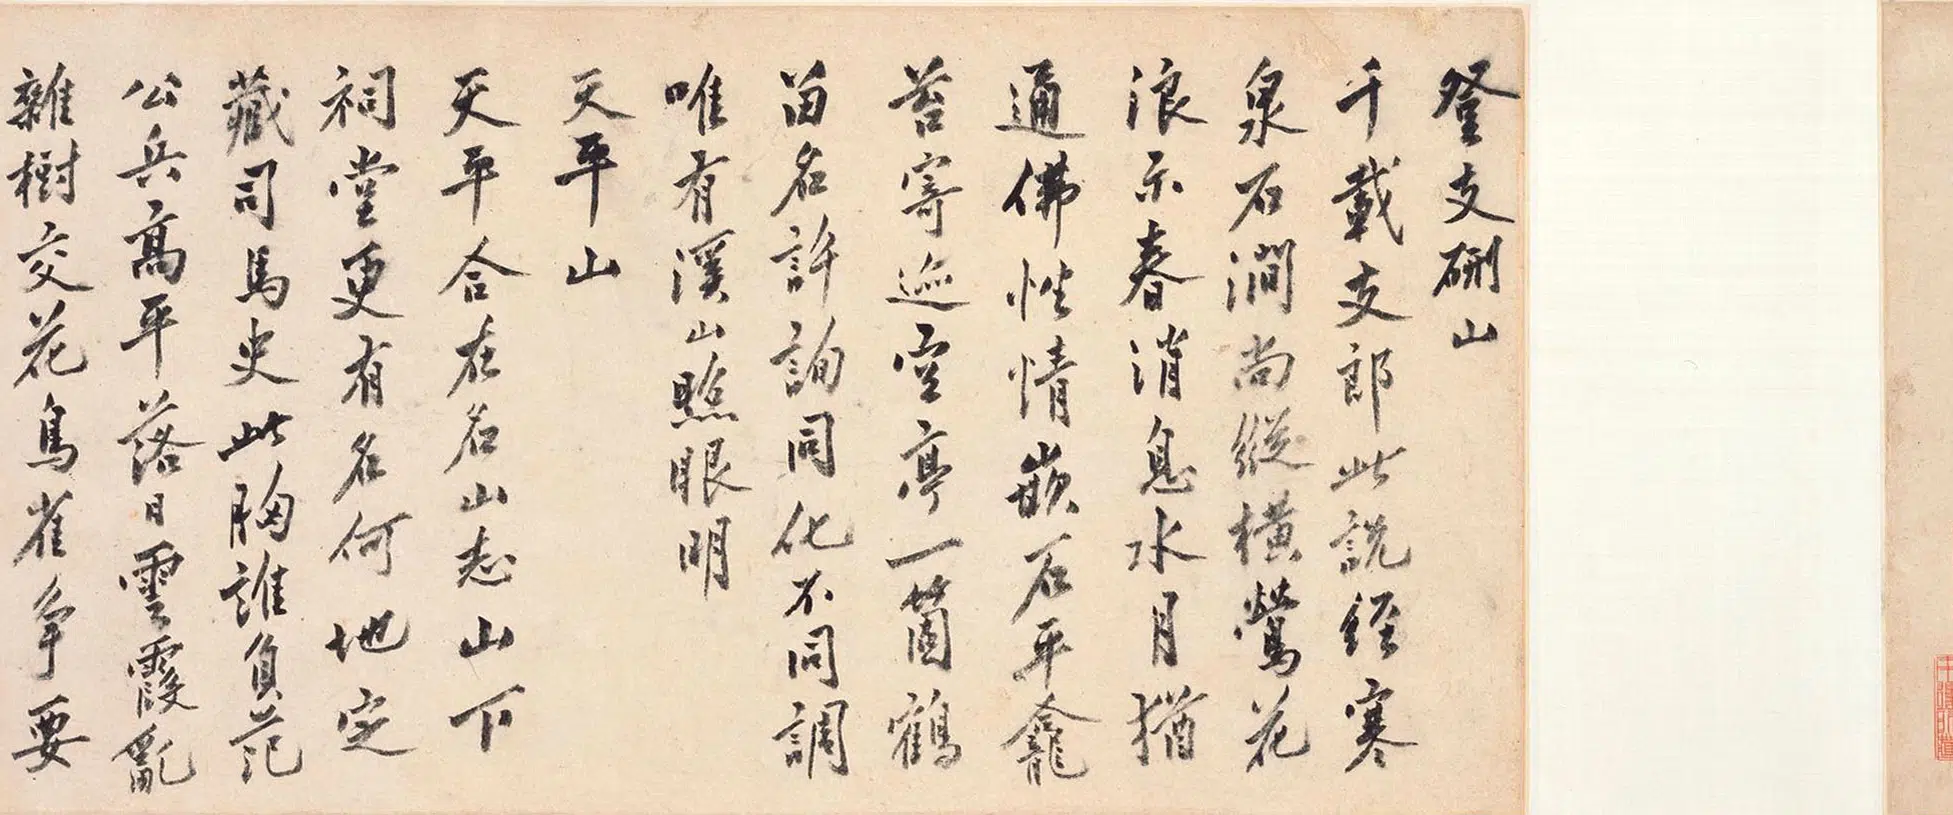 登支硎山
千載支郎此說經寒
泉石澗尚縱橫鶯花
浪示春消息水月猶
通佛性情嵌石平龕
苔寄迹空亭一箇鶴
留名許詢同化不同調
唯有溪山照眼明
天平山
天平合在名山志山下
祠堂更有名何地定
藏司馬史此胸誰負范
公兵高平落日雲霞亂
雜樹交花鳥雀爭要